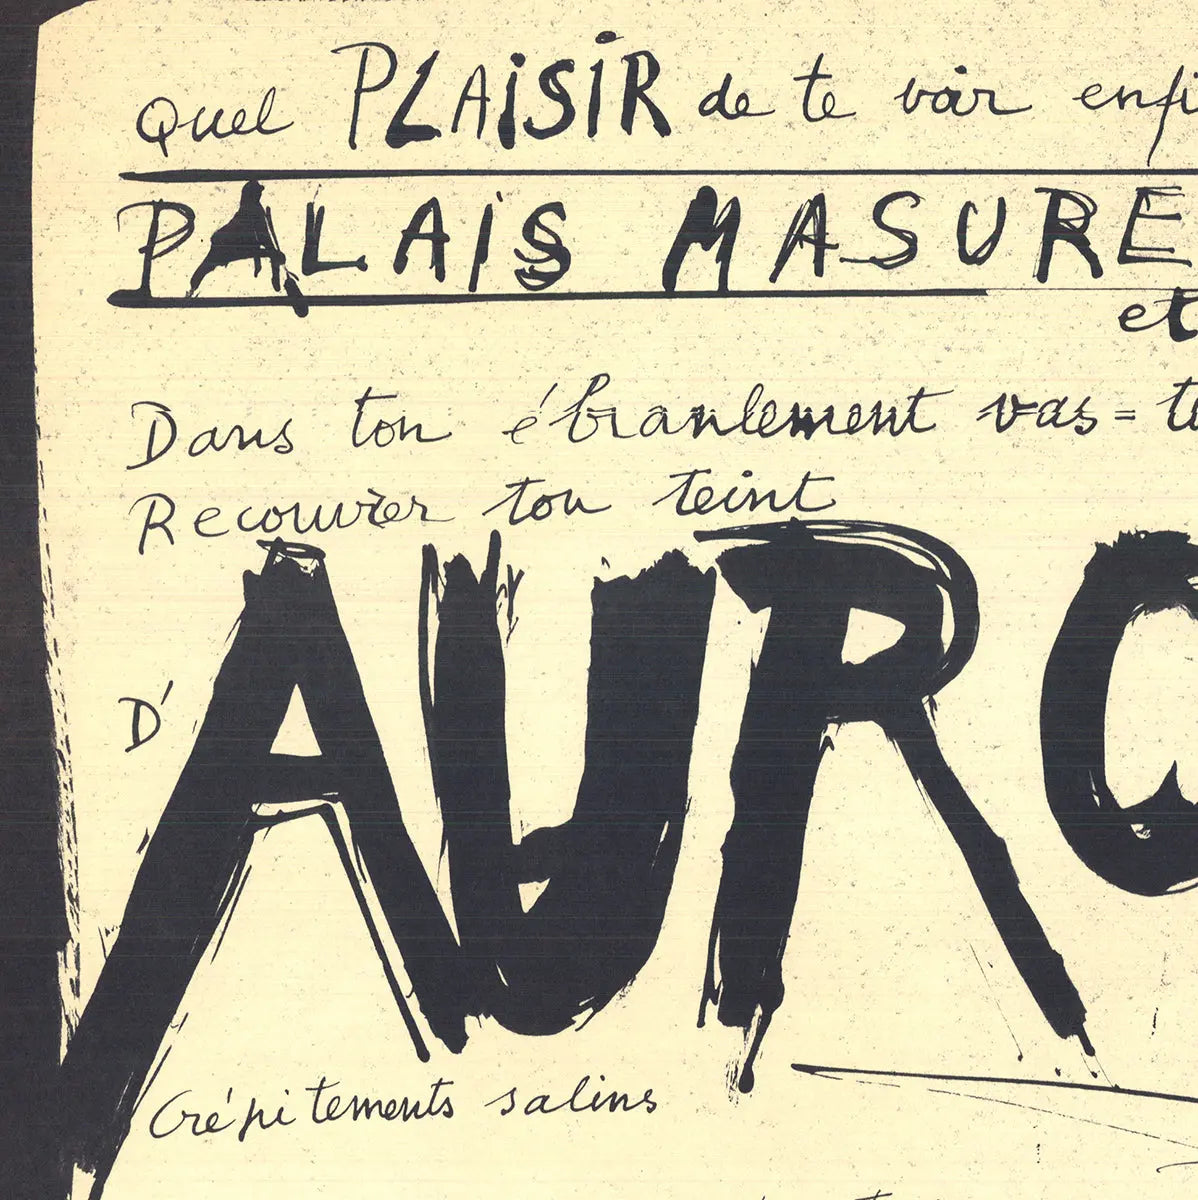 Quel PLAiSiR de te voir enfi
PALAiS MASURE
et
Dans ton ébranlement vas = te
Recouvrer ton teint
D'
AURO
Crépitements salins